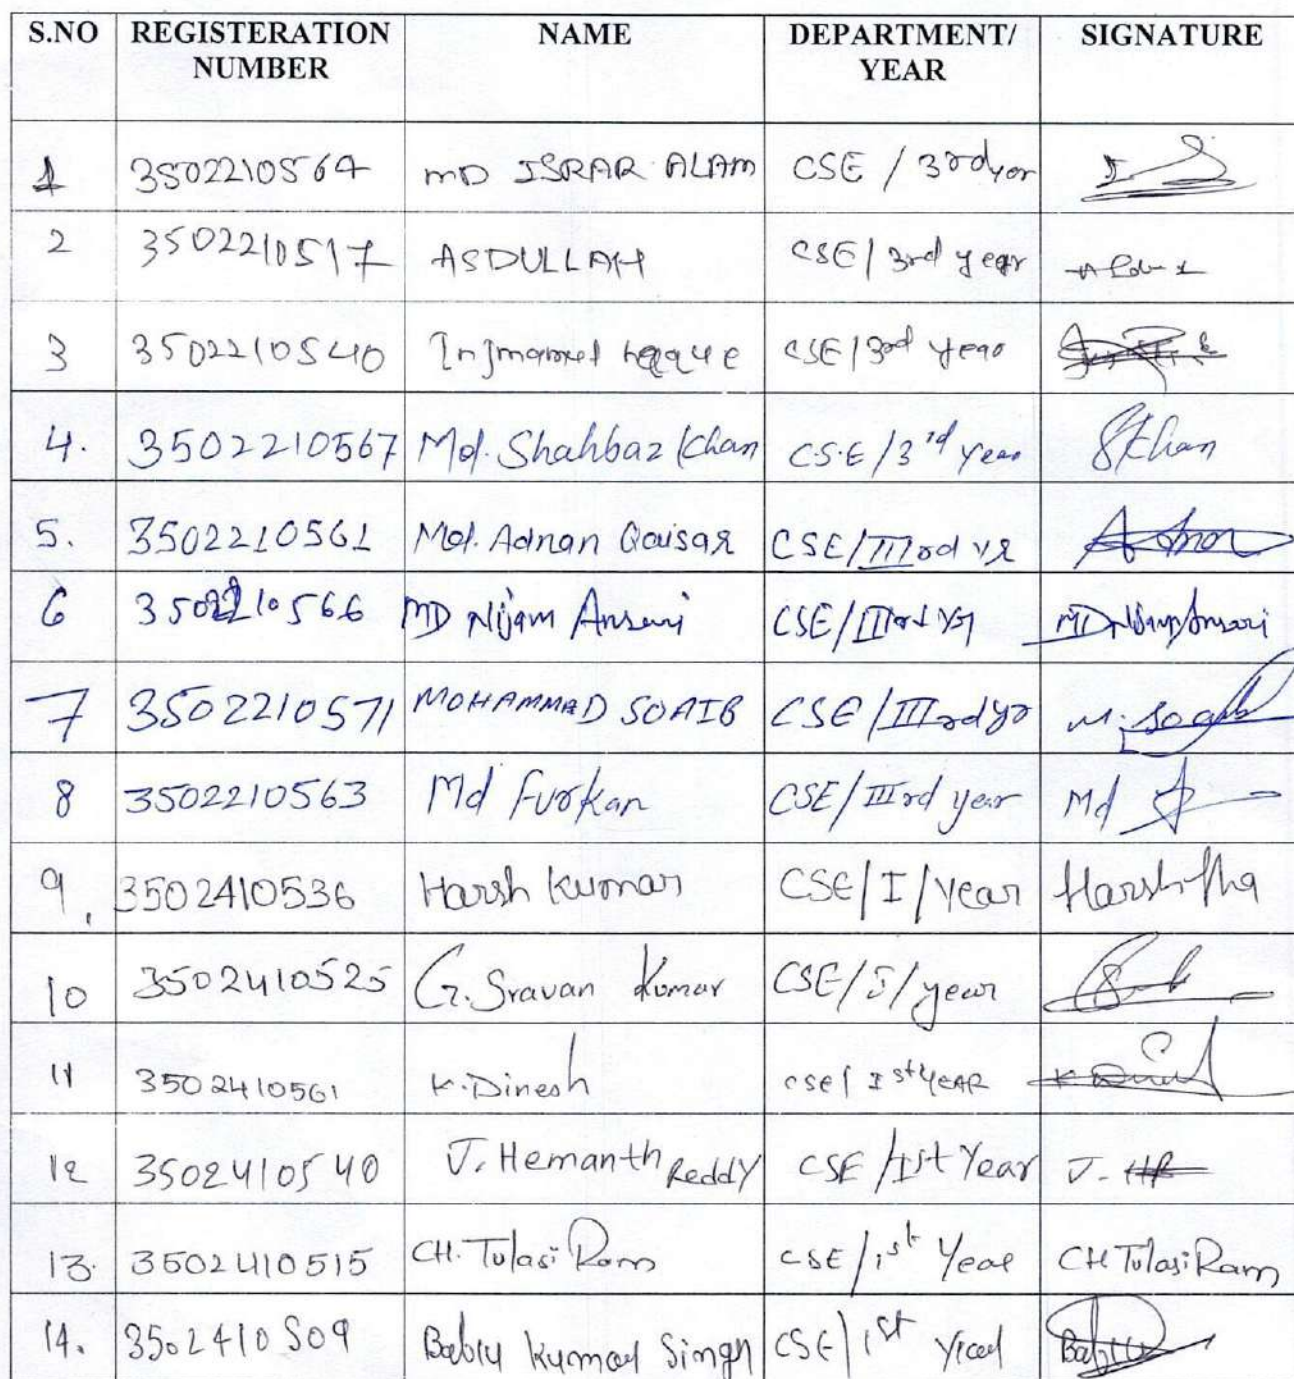 S.NO REGISTERATION NUMBER NAME DEPARTMENT/ YEAR SIGNATURE
1 3502210564 MD ISRAR ALAM CSE / 3rd yer
2 3502210517 ASDULLAH CSE / 3rd year
3 3502210540 Injmamul haque CSE / 3rd year
4. 3502210567 Md. Shahbaz Khan C.S.E / 3rd year SKhan
5. 3502210561 Md. Adnan Qaisar CSE/IIIrd yr Adnan
6 3502210566 MD Nijam Ansari CSE/IIIrd yr MD Nijam Ansari
7 3502210571 MOHAMMAD SOAIB CSE/IIIrd yr M. Soaib
8 3502210563 Md Furkan CSE/IIIrd year Md
9. 3502410536 Harsh Kumar CSE/I/Year Harsh
10 3502410525 G. Sravan Kumar CSE/I/year
11 3502410561 K. Dinesh CSE/ Ist YEAR
12 3502410540 J. Hemanth Reddy CSE/Ist Year J. HR
13. 3502410515 CH. Tulasi Ram CSE/1st Year CH Tulasi Ram
14. 3502410509 Bablu Kumar Singh CSE/1st Year Bablu